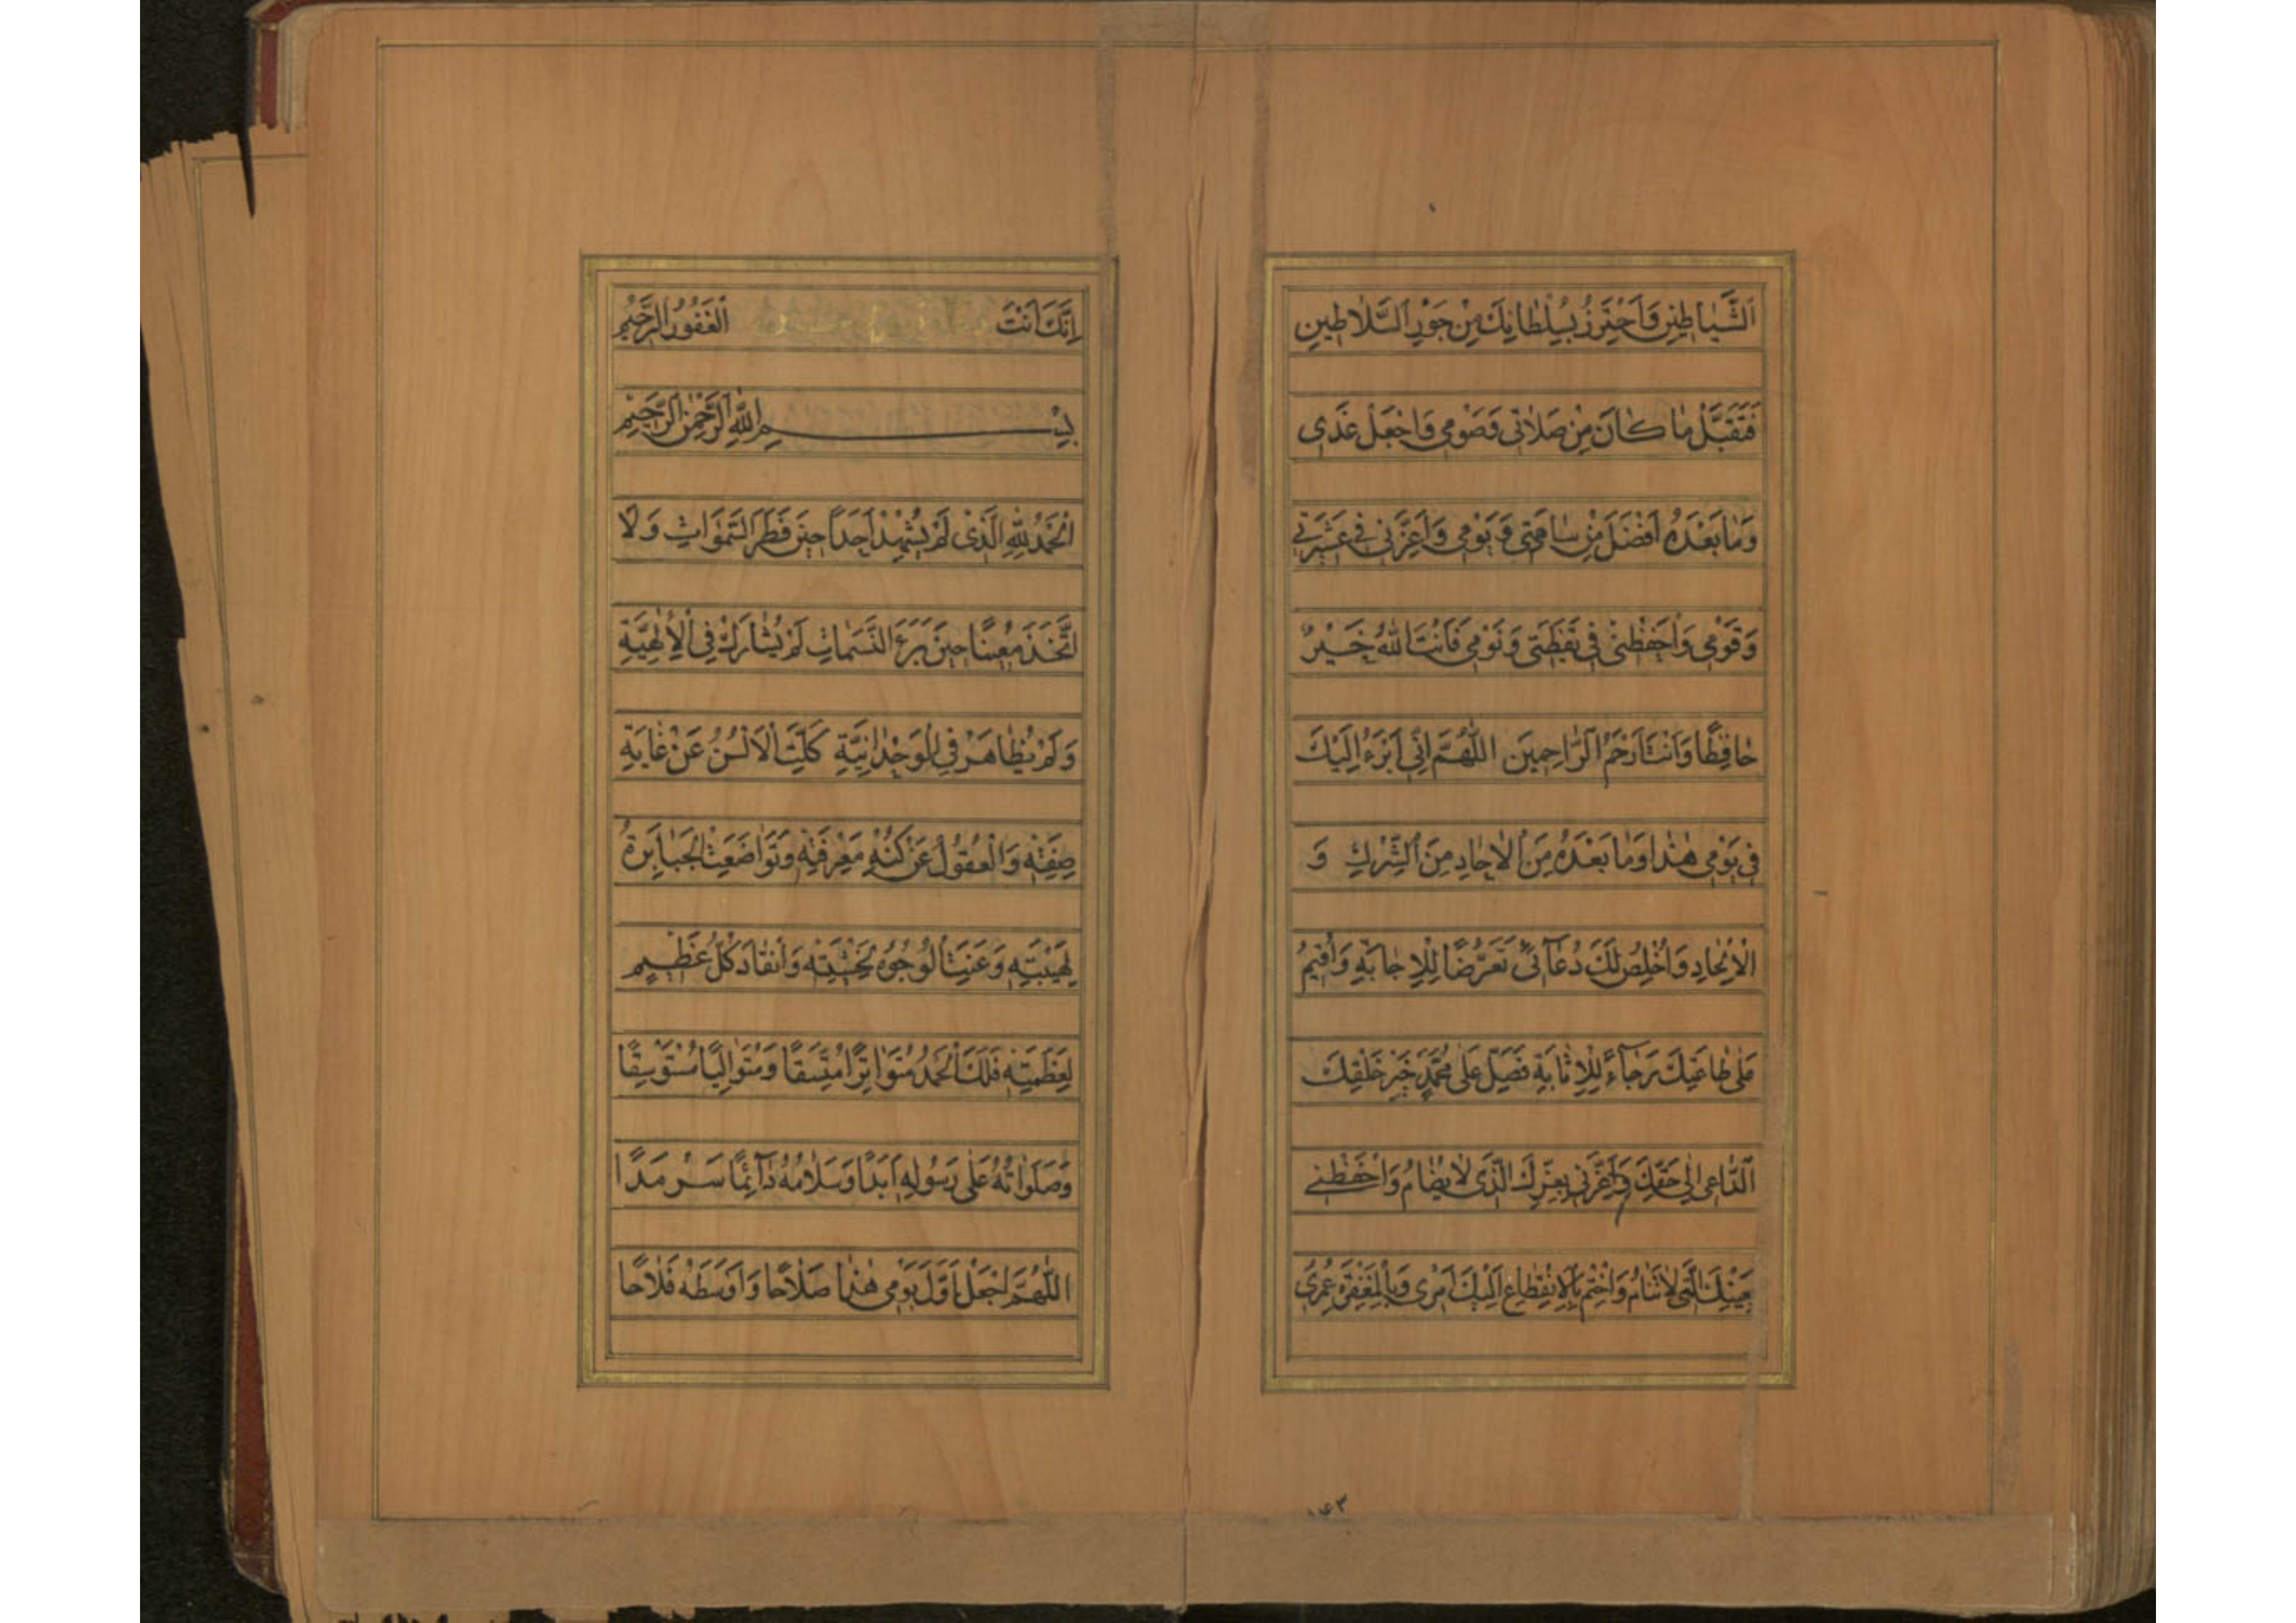 اَلشَّيٰاطينِ وَاَحْتَرِزُ بِسُلْطانِكَ مِنْ جَوْرِ السَّلاٰطينِ
فَتَقَبَّلْ مٰا كٰانَ مِنْ صَلاٰتى وَصَوْمى وَاجْعَلْ غَدى
وَمٰا بَعْدَهُ اَفْضَلَ مِنْ سٰاعَتى وَيَوْمى وَاَعِزَّنى فى عَشيرَتى
وَقَوْمى وَاحْفَظْنى فى يَقْظَتى وَنَوْمى فَاَنْتَ اللّٰهُ خَيْرٌ
حٰافِظًا وَاَنْتَ اَرْحَمُ الرّٰاحِمينَ اللّٰهُمَّ اِنّى اَبْرَءُ اِلَيْكَ
فى يَوْمى هٰذٰا وَمٰا بَعْدَهُ مِنَ الْاٰحٰادِ مِنَ الشِّرْكِ وَ
الْاِلْحٰادِ وَاُخْلِصُ لَكَ دُعٰٓائى تَعَرُّضًا لِلْاِجٰابَةِ وَاُقيمُ
عَلىٰ طٰاعَتِكَ رَجٰٓاءً لِلْاِثٰابَةِ فَصَلِّ عَلىٰ مُحَمَّدٍ خَيْرِ خَلْقِكَ
اَلدّٰاعى اِلىٰ حَقِّكَ وَاَعِزَّنى بِعِزِّكَ الَّذى لاٰ يُضٰامُ وَاحْفَظْنى
بِعَيْنِكَ الَّتى لاٰ تَنٰامُ وَاخْتِمْ بِالْاِنْقِطٰاعِ اِلَيْكَ اَمْرى وَبِالْمَغْفِرَةِ عُمْرى
١٤٣
اِنَّكَ اَنْتَ الْغَفُورُ الرَّحيمُ
بِسْمِ اللّٰهِ الرَّحْمٰنِ الرَّحيمِ
اَلْحَمْدُ لِلّٰهِ الَّذى لَمْ يُشْهِدْ اَحَدًا حينَ فَطَرَ السَّمٰوٰاتِ وَلاٰ
اتَّخَذَ مُعينًا حينَ بَرَءَ النَّسَمٰاتِ لَمْ يُشٰارَكْ فِى الْاِلٰهِيَّةِ
وَلَمْ يُظٰاهَرْ فِى الْوَحْدٰانِيَّةِ كَلَّتِ الْاَلْسُنُ عَنْ غٰايَةِ
صِفَتِهِ وَالْعُقُولُ عَنْ كُنْهِ مَعْرِفَتِهِ وَتَوٰاضَعَتِ الْجَبٰابِرَةُ
لِهَيْبَتِهِ وَعَنَتِ الْوُجُوهُ لِخَشْيَتِهِ وَانْقٰادَ كُلُّ عَظيمٍ
لِعَظَمَتِهِ فَلَكَ الْحَمْدُ مُتَوٰاتِرًا مُتَّسِقًا وَمُتَوٰالِيًا مُسْتَوْسِقًا
وَصَلَوٰاتُهُ عَلىٰ رَسُولِهِ اَبَدًا وَسَلاٰمُهُ دٰٓائِمًا سَرْمَدًا
اَللّٰهُمَّ اجْعَلْ اَوَّلَ يَوْمى هٰذٰا صَلاٰحًا وَاَوْسَطَهُ فَلاٰحًا